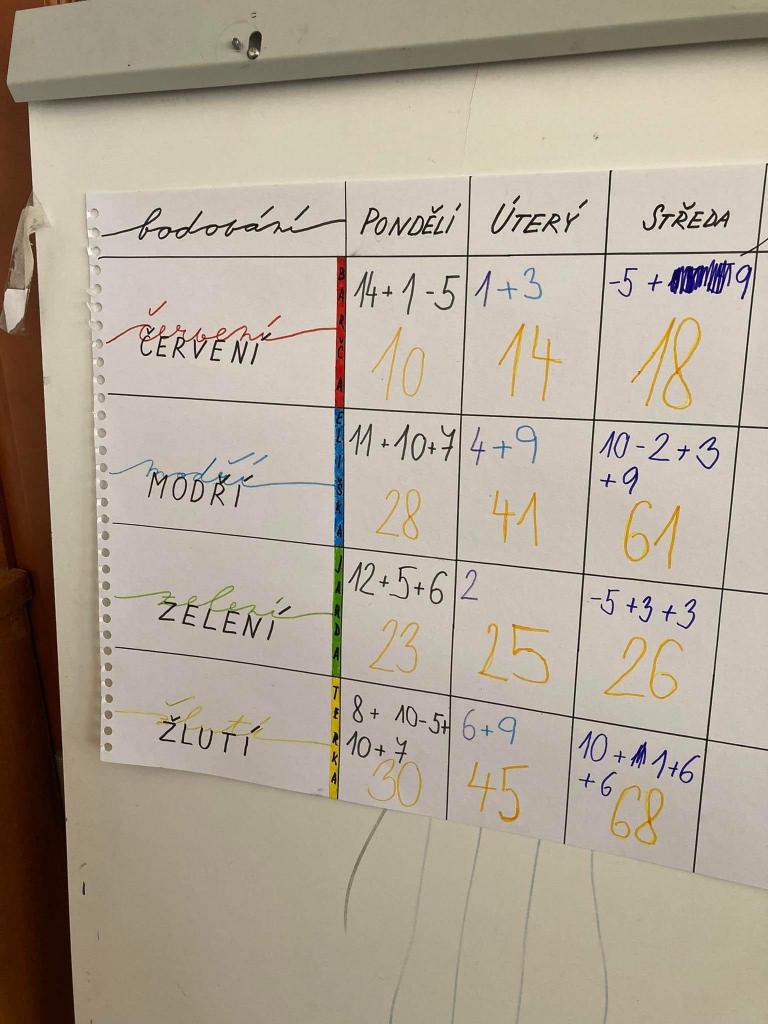 bodování PONDĚLÍ ÚTERÝ STŘEDA
červení
ČERVENÍ
BARČA
14+1-5
10
1+3
14
-5 + 9
18
modří
MODŘÍ
ELIŠKA
11+10+7
28
4+9
41
10-2+3
+9
61
zelení
ZELENÍ
JARDA
12+5+6
23
2
25
-5+3+3
26
žlutí
ŽLUTÍ
TERKA
8+ 10-5+
10+7
30
6+9
45
10+ 1+6
+6
68